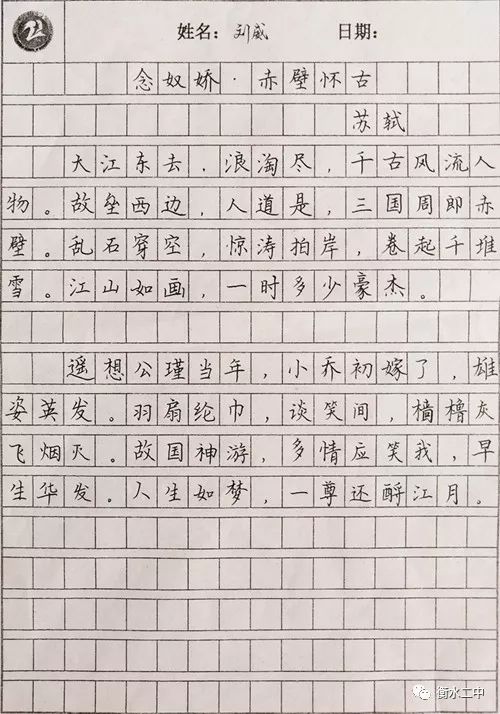 姓名：刘威 日期：
念奴娇·赤壁怀古
苏轼
大江东去，浪淘尽，千古风流人
物。故垒西边，人道是，三国周郎赤
壁。乱石穿空，惊涛拍岸，卷起千堆
雪。江山如画，一时多少豪杰。
遥想公瑾当年，小乔初嫁了，雄
姿英发。羽扇纶巾，谈笑间，樯橹灰
飞烟灭。故国神游，多情应笑我，早
生华发。人生如梦，一尊还酹江月。
衡水二中